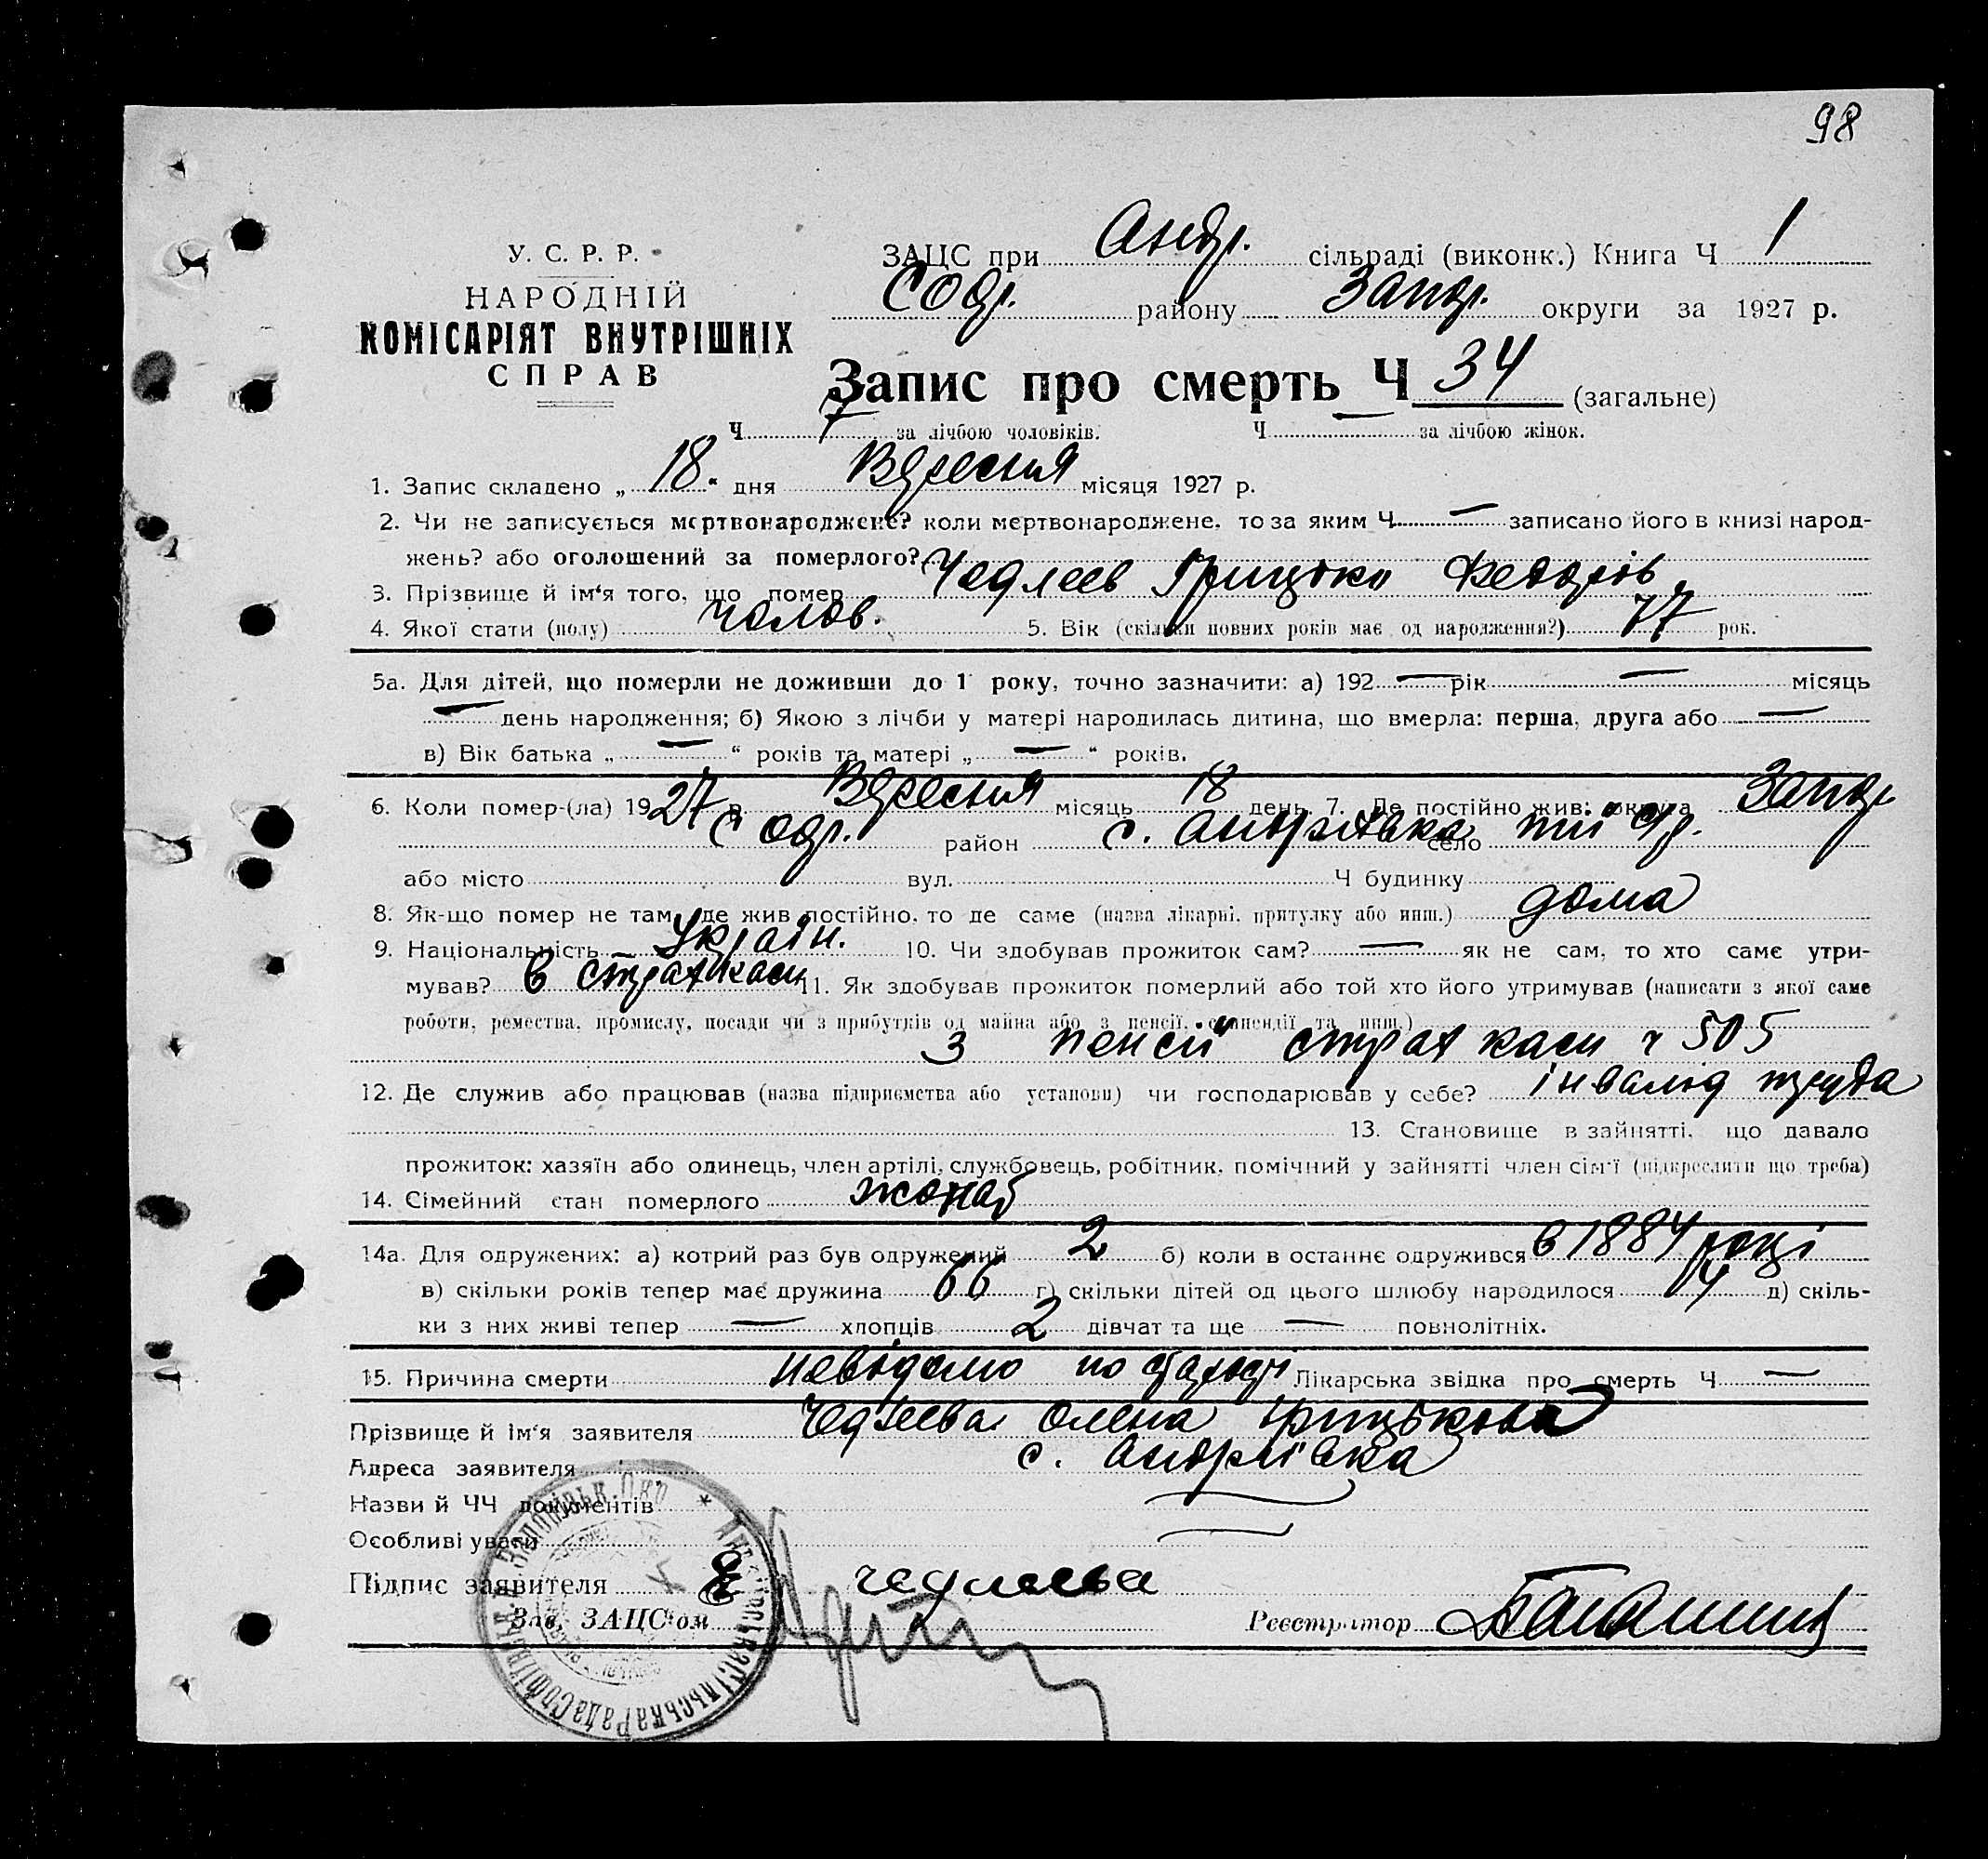 98
У. С. Р. Р.
НАРОДНІЙ
КОМІСАРІЯТ ВНУТРІШНІХ
СПРАВ
ЗАЦС при Андр. сільраді (виконк.) Книга Ч 1
Соф. району Запор. округи за 1927 р.
Запис про смерть Ч 34 (загальне)
Ч 7 за лічбою чоловіків. Ч — за лічбою жінок.
1. Запис складено „ 18 " дня Вересня місяця 1927 р.
2. Чи не записується мертвонароджене? коли мертвонароджене, то за яким Ч — записано його в книзі народ-
жень? або оголошений за померлого?
3. Прізвище й ім'я того, що помер Грицько Федорів
4. Якої стати (полу) чолов. 5. Вік (скільки повних років має од народження?) 77 рок.
5а. Для дітей, що померли не доживши до 1 року, точно зазначити: а) 192 — рік — місяць
— день народження; б) Якою з лічби у матері народилась дитина, що вмерла: перша, друга або —
в) Вік батька „ — " років та матері „ — " років.
6. Коли помер-(ла) 1927 р. Вересня місяць 18 день 7. Де постійно жив: округа Запор
Соф. район с. Андріївка село
або місто вул. Ч будинку
8. Як-що помер не там, де жив постійно, то де саме (назва лікарні, притулку або инш.) дома
9. Національність Україн. 10. Чи здобував прожиток сам? — як не сам, то хто саме утри-
мував? в страхкаси 11. Як здобував прожиток померлий або той хто його утримував (написати з якої саме
роботи, ремества, промислу, посади чи з прибутків од майна або з пенсії, стипендії та инш.)
з пенсії страхкаси ч 505
12. Де служив або працював (назва підприємства або установи) чи господарював у себе? інвалід труда
13. Становище в зайнятті, що давало
прожиток: хазяїн або одинець, член артілі, службовець, робітник, помічний у зайнятті член сім'ї (підкреслити що треба)
14. Сімейний стан померлого жонат
14а. Для одружених: а) котрий раз був одружений 2 б) коли в останнє одружився в 1884 році
в) скільки років тепер має дружина 66 г) скільки дітей од цього шлюбу народилося 4 д) скіль-
ки з них живі тепер — хлопців 2 дівчат та ще — повнолітніх.
15. Причина смерти невідомо по старості Лікарська звідка про смерть Ч —
Прізвище й ім'я заявителя Олена Грицькова
Адреса заявителя с. Андріївка
Назви й ЧЧ документів —
Особливі уваги —
Підпис заявителя
Зав. ЗАЦС'ом Реєстратор